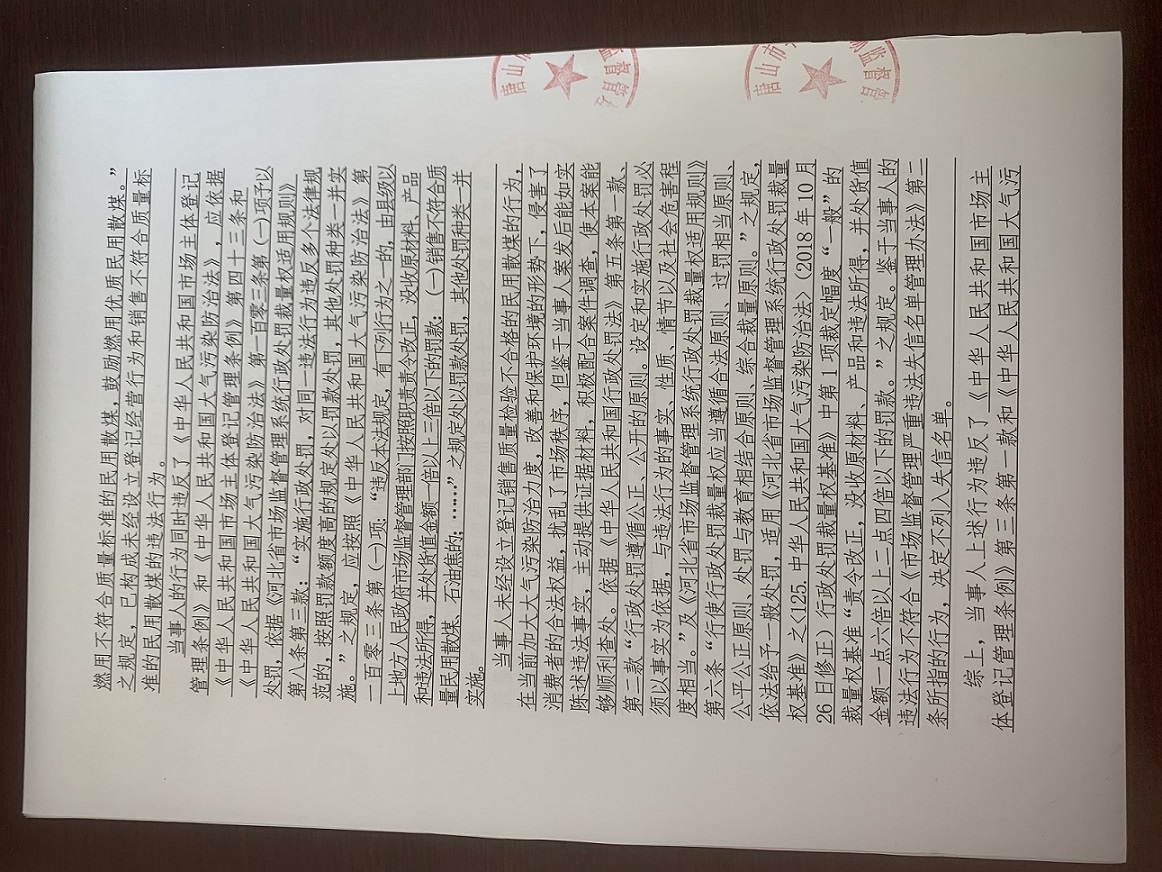 燃用不符合质量标准的民用散煤，鼓励燃用优质民用散煤。”
之规定，已构成未经设立登记经营行为和销售不符合质量标
准的民用散煤的违法行为。
当事人的行为同时违反了《中华人民共和国市场主体登记
管理条例》和《中华人民共和国大气污染防治法》，应依据
《中华人民共和国市场主体登记管理条例》第四十三条和
《中华人民共和国大气污染防治法》第一百零三条第（一）项予以
处罚，依据《河北省市场监督管理系统行政处罚裁量权适用规则》
第八条第三款：“实施行政处罚，对同一违法行为违反多个法律规
范的，按照罚款额度高的规定处以罚款处罚，其他处罚种类一并实
施。”之规定，应按照《中华人民共和国大气污染防治法》第
一百零三条第（一）项：“违反本法规定，有下列行为之一的，由县级以
上地方人民政府市场监督管理部门按照职责责令改正，没收原材料、产品
和违法所得，并处货值金额一倍以上三倍以下的罚款：（一）销售不符合质
量民用散煤、石油焦的；……”之规定处以罚款处罚，其他处罚种类一并
实施。
当事人未经设立登记销售质量检验不合格的民用散煤的行为，
在当前加大大气污染防治力度，改善和保护环境的形势下，侵害了
消费者的合法权益，扰乱了市场秩序，但鉴于当事人案发后能如实
陈述违法事实，主动提供证据材料，积极配合案件调查，使本案能
够顺利查处。依据《中华人民共和国行政处罚法》第五条第一款、
第二款“行政处罚遵循公正、公开的原则。设定和实施行政处罚必
须以事实为依据，与违法行为的事实、性质、情节以及社会危害程
度相当。”及《河北省市场监督管理系统行政处罚裁量权适用规则》
第六条“行使行政处罚裁量权应当遵循合法原则、过罚相当原则、
公平公正原则、处罚与教育相结合原则、综合裁量原则。”之规定，
依法给予一般处罚，适用《河北省市场监督管理系统行政处罚裁量
权基准》之〈125.中华人民共和国大气污染防治法〉（2018 年 10 月
26 日修正）行政处罚裁量权基准》中第 1 项裁定幅度“一般”的
裁量权基准“责令改正，没收原材料、产品和违法所得，并处货值
金额一点六倍以上二点四倍以下的罚款。”之规定。鉴于当事人的
违法行为不符合《市场监督管理严重违法失信名单管理办法》第二
条所指的行为，决定不列入失信名单。
综上，当事人上述行为违反了《中华人民共和国市场主
体登记管理条例》第三条第一款和《中华人民共和国大气污
唐山市
监督管
唐山市
监督管